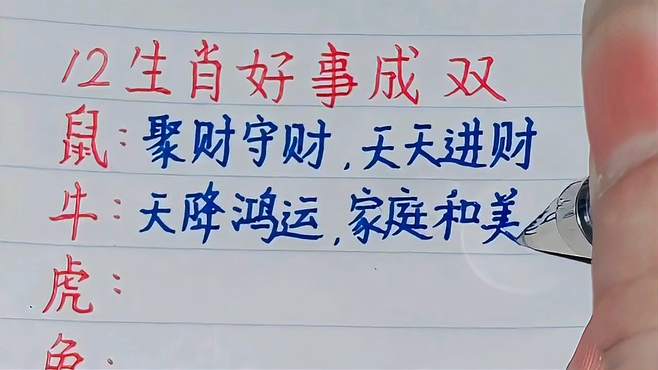 12生肖好事成双
鼠：聚财守财，天天进财
牛：天降鸿运，家庭和美
虎：
兔：